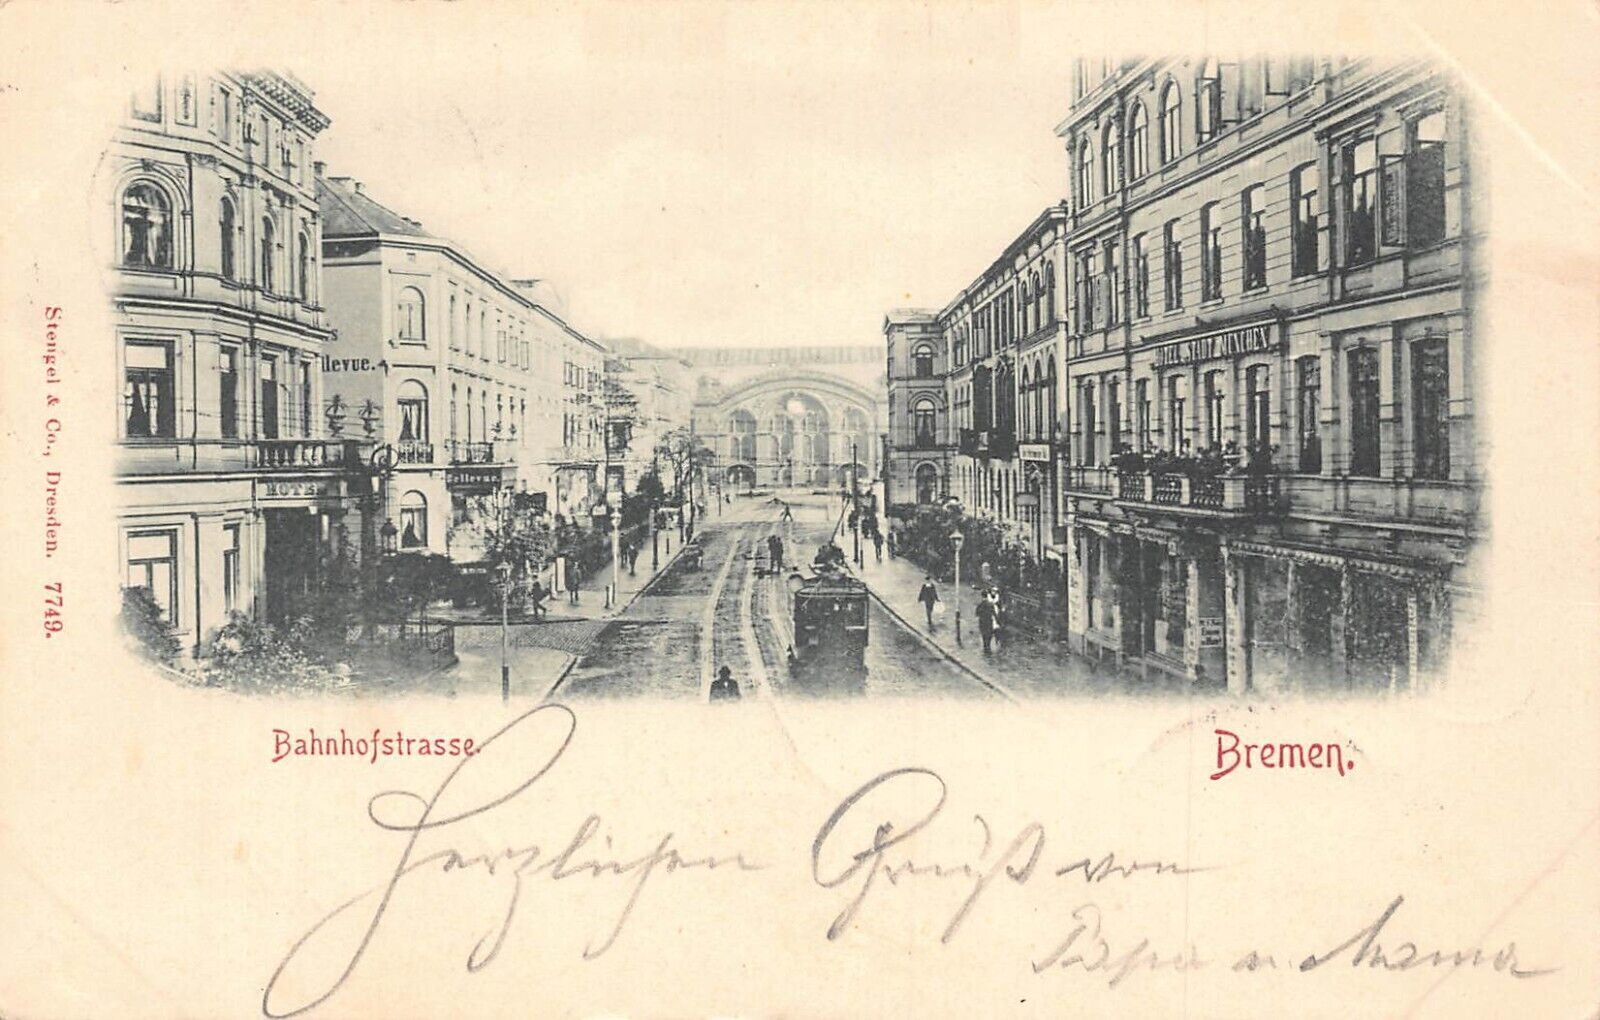 Stengel & Co., Dresden. 7749.
llevue.
HOTE
Bellevue
HOTEL STADT MÜNCHEN
Bahnhofstrasse.
Bremen.
Herzlichen Gruß von
Papa u. Mama